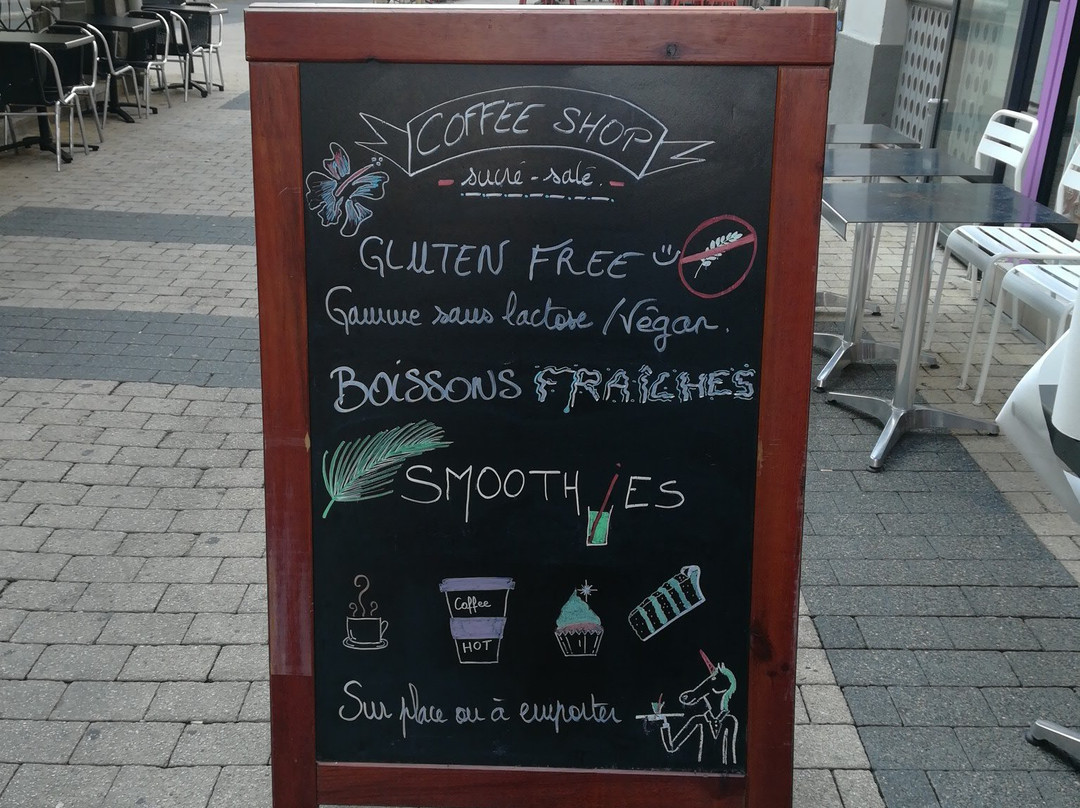 COFFEE SHOP
- sucré - salé. -
GLUTEN FREE
Gamme sans lactose / Végan.
BOISSONS FRAÎCHES
SMOOTHIES
Coffee
HOT
Sur place ou à emporter